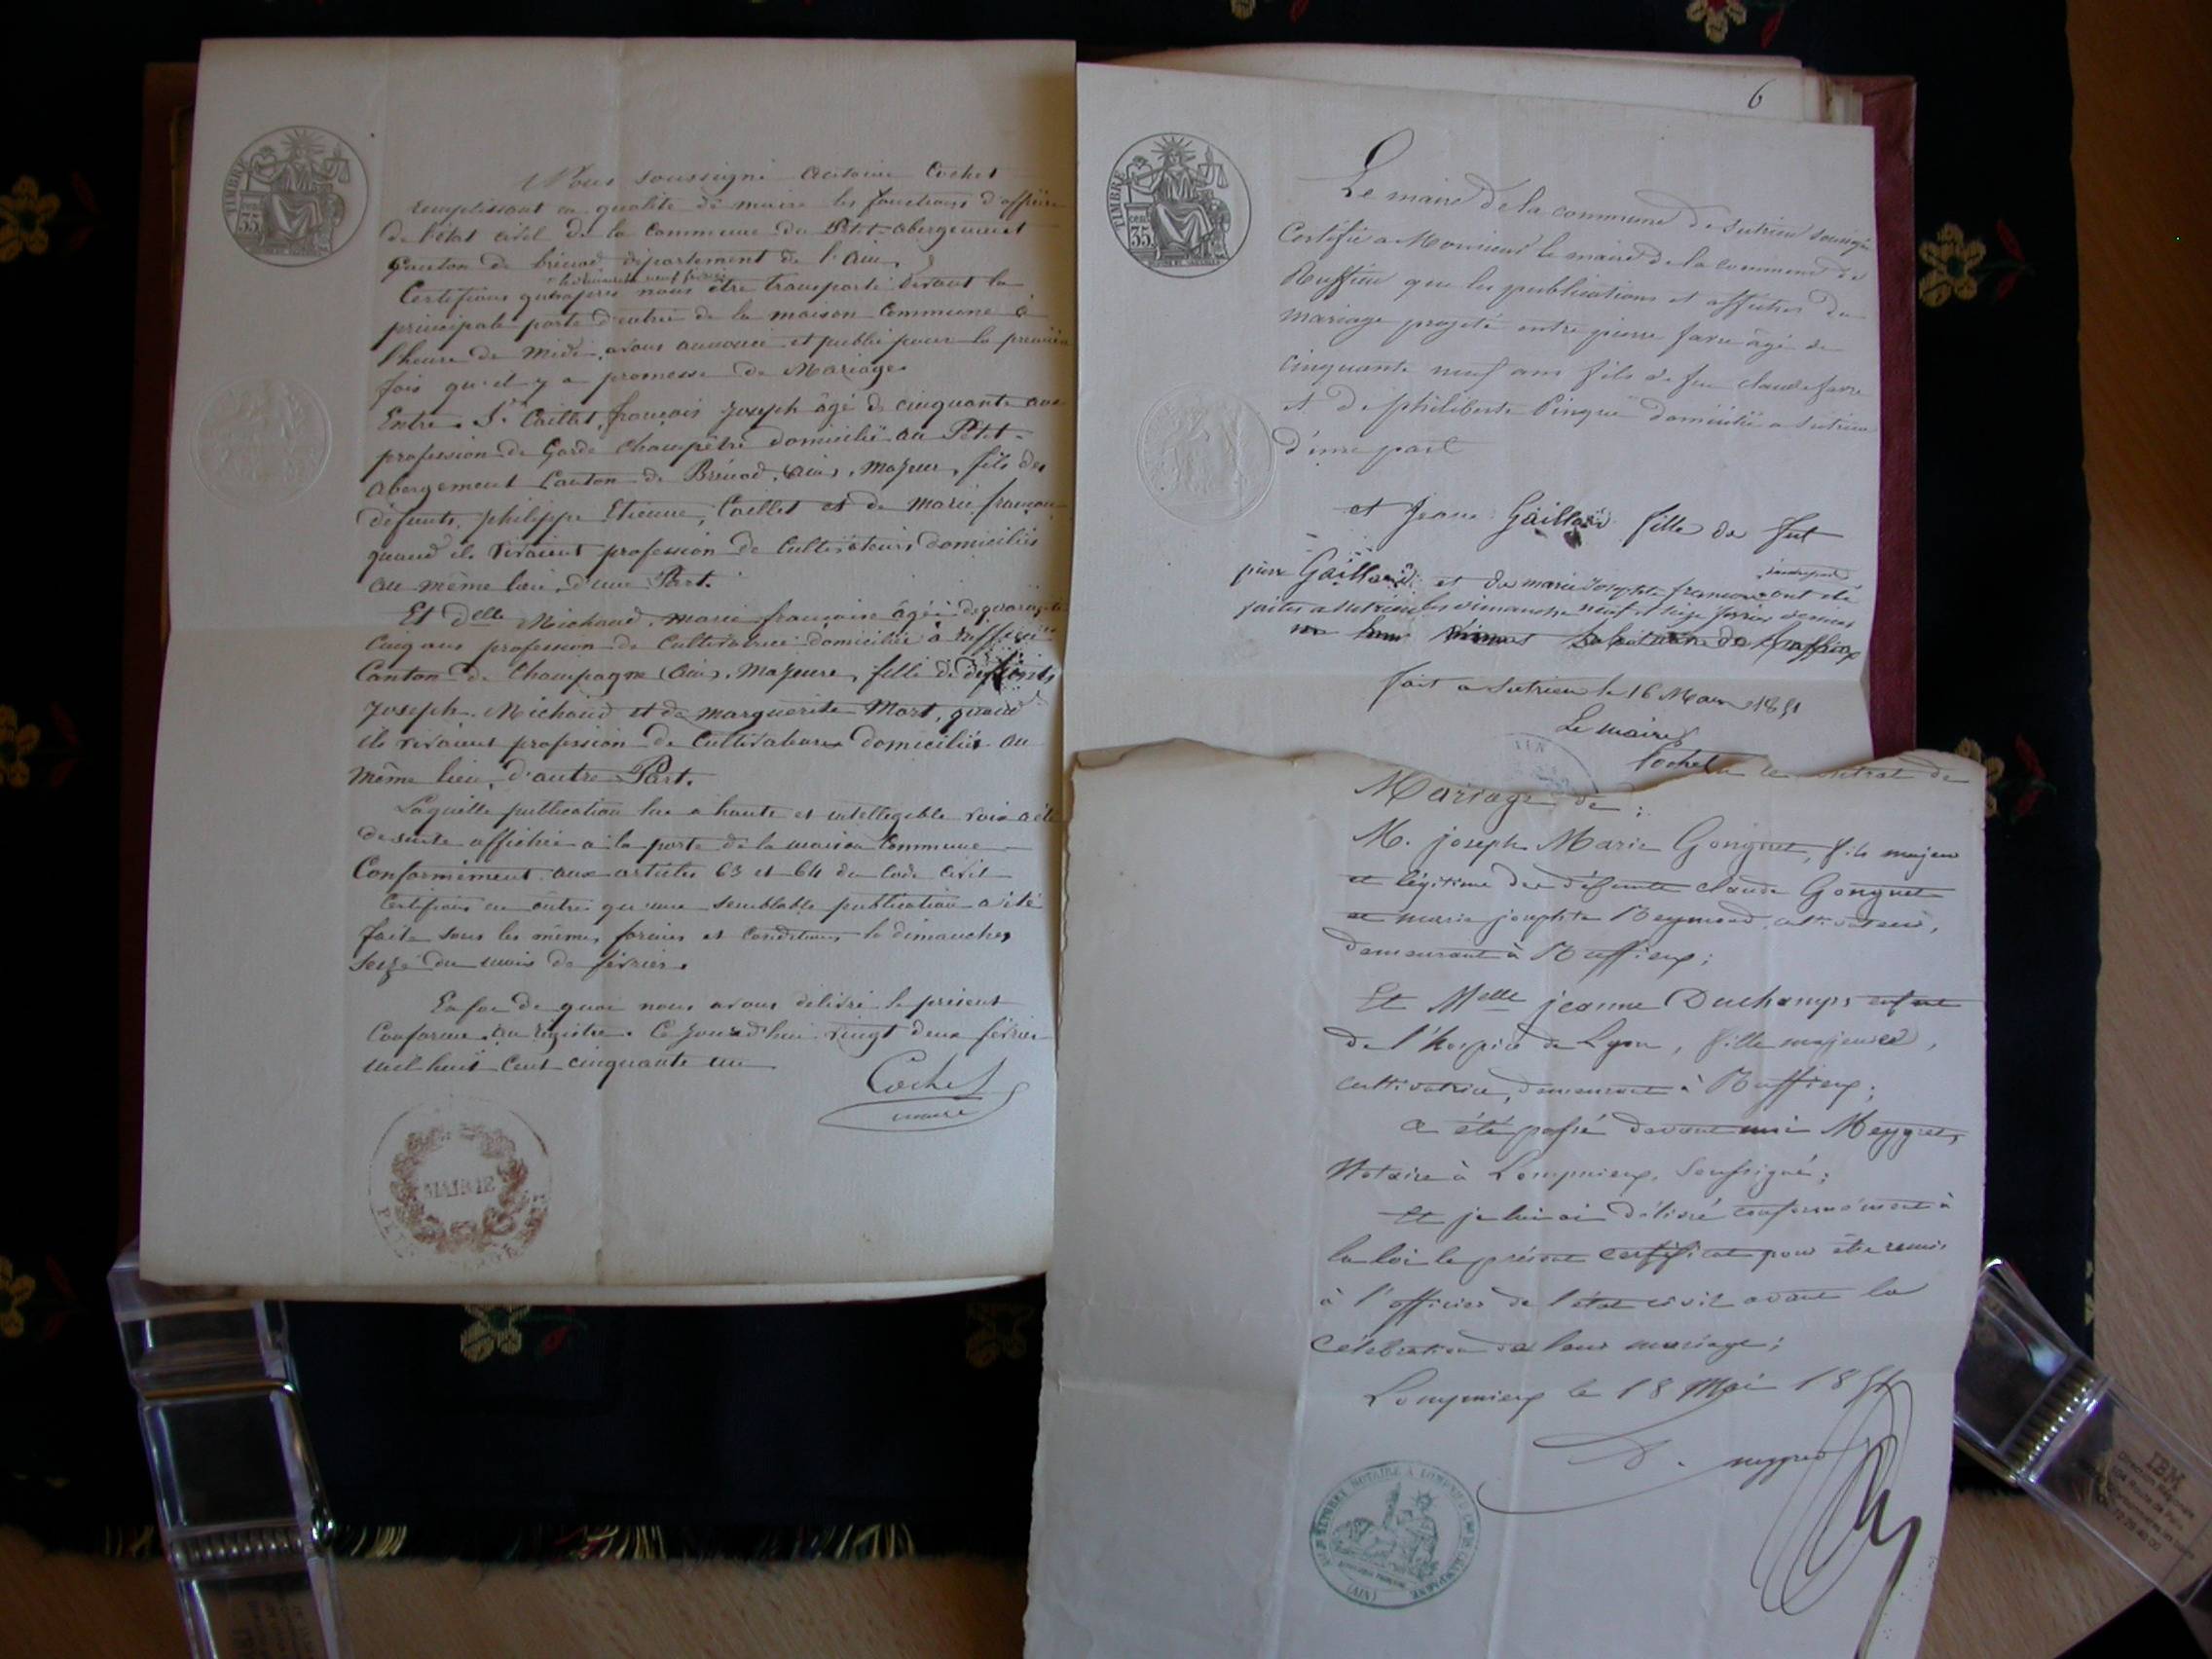 TIMBRE
cent
35
Nous soussigné Antoine Cochet
remplissant en qualité de maire les fonctions d'officier
de l'état civil de la Commune du Petit-abergement
Canton de brénod département de l'Ain,
Certifions qu'après nous être transporté devant la
principale porte d'entrée de la maison Commune à
l'heure de midi, avons annoncé et publié pour la première
fois qu'il y a promesse de Mariage
Entre Sr. Caillet, françois Joseph âgé de cinquante ans
profession de Garde Champêtre domicilié au Petit-
abergement Canton de Brénod, Ain, Majeur, fils des
défunts, philippe Etienne, Caillet et de Marie
quand ils vivaient profession de Cultivateurs domiciliés
au même lieu, d'une Part.
Et Delle Michaud, marie françoise âgée de quarante
cinq ans profession de Cultivatrice domiciliée à Ruffieu
Canton de Champagne (Ain), Majeure, fille de défunts
Joseph Michaud et de Marguerite Mart, quand
ils vivaient profession de Cultivateurs domiciliés au
même lieu, d'autre Part.
Laquelle publication lue a haute et intelligible voix a été
de suite affichée à la porte de la maison Commune
Conformément aux articles 63 et 64 du Code Civil
Certifions en outre qu'une semblable publication a été
faite sous les mêmes formes et Conditions le dimanche
seize du mois de février.
En foi de quoi nous avons délivré le présent
Conforme au régistre. Ce jourd'hui vingt deux février
mil huit Cent cinquante un
Cochet
maire
MAIRIE
6
TIMBRE
cent
35
Le maire de la commune de Sutrieu soussigné
Certifie a Monsieur le maire de la commune de
Ruffieu que les publications et affiches du
mariage projeté entre pierre favre âgé de
cinquante neuf ans fils de feu claude favre
et de philiberte Pingue domicilié a Sutrieu
d'une part
et Jeane Gaillard fille de fut
pierre Gaillard et de marie Josephte francon ont été
d'autre part
faites a Sutrieu les dimanche neuf et seize février dernier
fait a Sutrieu le 16 Mars 1851
Le maire
Cochet
Mariage de :
M. joseph Marie Gonguet, fils majeur
et légitime des défunts claude Gonguet
et marie josephte Reymond, cultivateurs,
demeurant à Ruffieux ;
Et Melle jeanne Duchamps enfant
de l'hospice de Lyon, fille majeure,
cultivatrice, demeurant à Ruffieux ;
a été passé devant moi Meygret,
Notaire à Lompnieux, Soussigné ;
Et je lui ai délivré conformément à
la loi le présent certificat pour être remis
à l'officier de l'état civil avant la
célébration de leur mariage ;
Lompnieux le 18 Mai 1851
meygret
NOTAIRE A
(AIN)
IBM